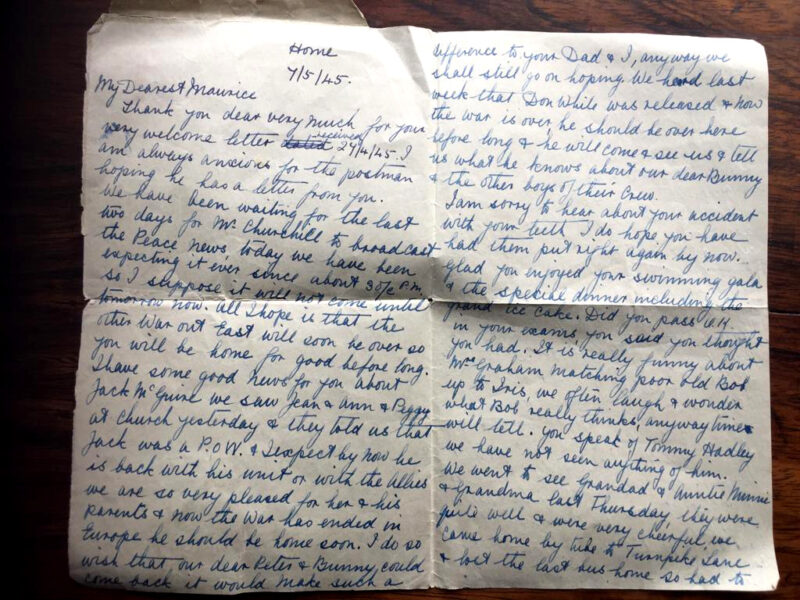 Home
7/5/45.
My Dearest Maurice
Thank you dear very much for your
very welcome letter dated received 27/4/45. I
am always anxious for the postman
hoping he has a letter from you.
We have been waiting for the last
two days for Mr Churchill to broadcast
the Peace news, today we have been
expecting it ever since about P.M.
so I suppose it will not come until
tomorrow now. All I hope is that the
other War out East will soon be over so
you will be home for good before long.
I have some good news for you about
Jack McGuire we saw Jean & Ann & Peggy
at church yesterday & they told us that
Jack was a P.O.W. & I expect by now he
is back with his unit or with the Allies
we are so very pleased for her & his
parents & now the War has ended in
Europe he should be home soon. I do so
wish that our dear Peter & Bunny, could
come back it would make such a
difference to your Dad & I, anyway we
shall still go on hoping. We heard last
week that Don White was released & now
the war is over, he should be over here
before long & he will come & see us & tell
us what he knows about our dear Bunny
& the other boys of their Crew.
I am sorry to hear about your accident
with your teeth I do hope you have
had them put right again by now.
Glad you enjoyed your swimming gala
& the special dinner including the
grand ice cake. Did you pass
in your exams you said you thought
you had. It is really funny about
Mrs Graham matching poor old Bob
up to Iris, we often laugh & wonder
what Bob really thinks, anyway time
will tell. you speak of Tommy Hadley
we have not seen anything of him.
We went to see Grandad & Auntie Minnie
& Grandma last Thursday, they were
quite well & were very cheerful, we
came home by tube to Turnpike Lane
& lost the last bus home so had to